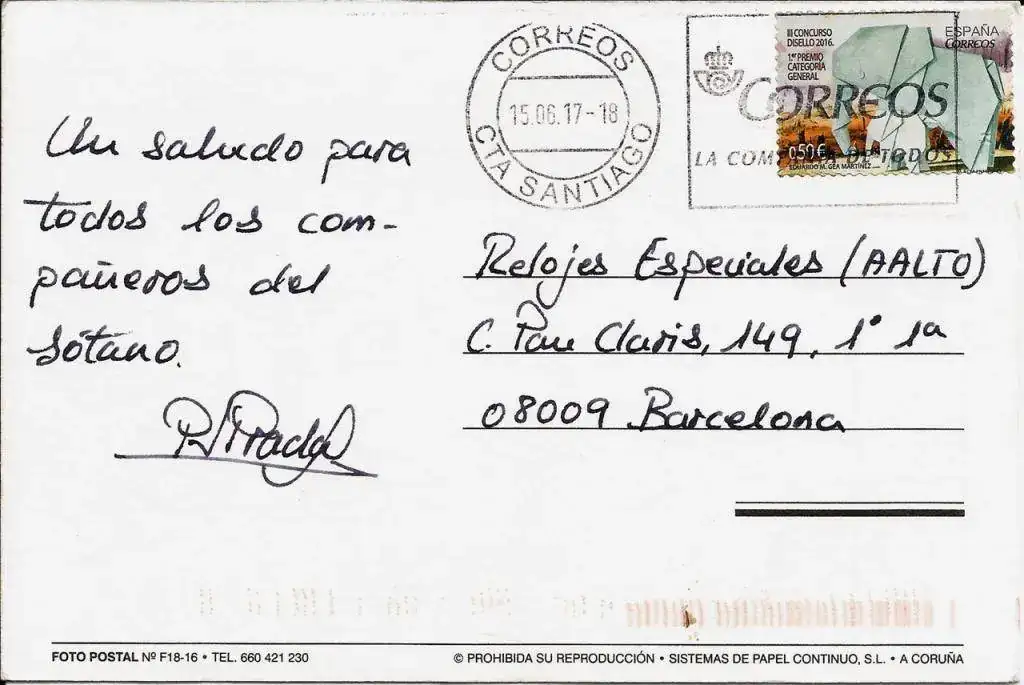 CORREOS
15.06.17-18
CTA SANTIAGO
CORREOS
LA DE TODOS
III CONCURSO
DISELLO 2016.
1.er PREMIO
CATEGORÍA
GENERAL
ESPAÑA
CORREOS
0,50€
EDUARDO M. GEA MARTÍNEZ
Un saludo para
todos los com-
pañeros del
sótano.
Relojes Especiales (AALTO)
C. Pau Claris, 149, 1º 1ª
08009 Barcelona
FOTO POSTAL Nº F18-16 • TEL. 660 421 230
© PROHIBIDA SU REPRODUCCIÓN • SISTEMAS DE PAPEL CONTINUO, S.L. • A CORUÑA